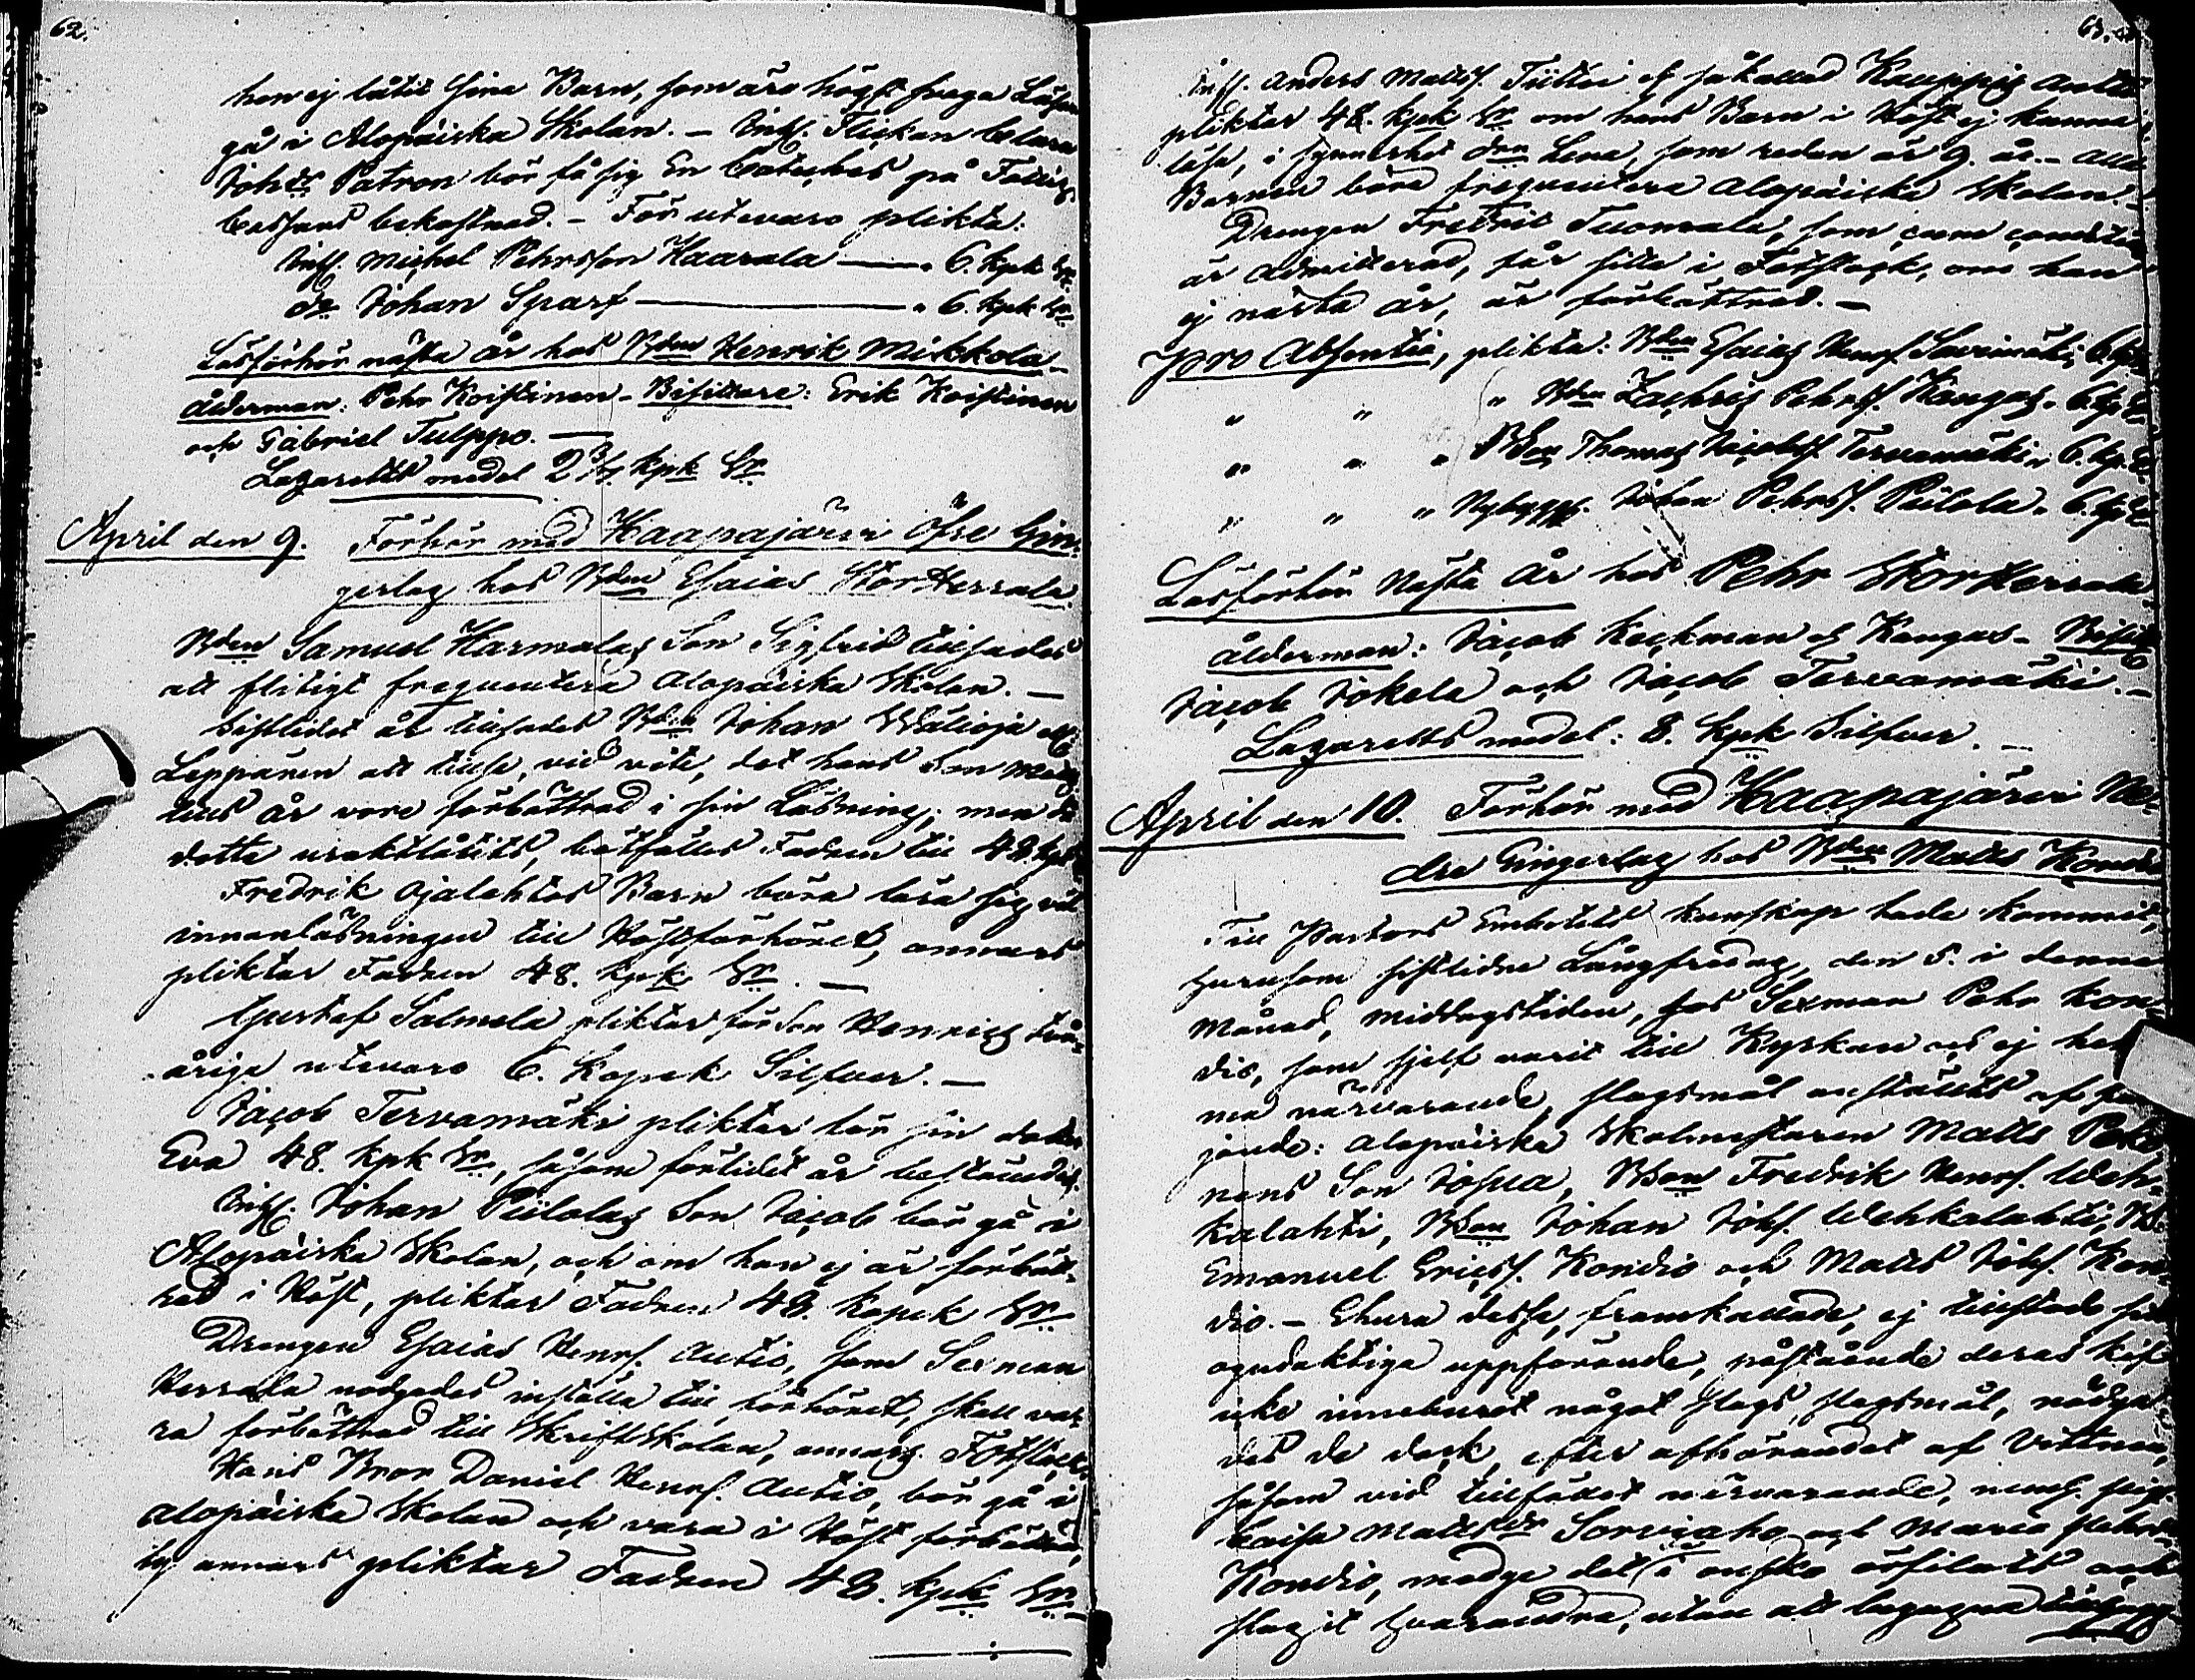 62.
han ej låtit sina Barn, som äro högst svaga Läsare
gå i Alopäiska Skolan. — Inh. Flickan Clara
Johs Patron bör få sig En Cateches på Fattig
Cassans bekostnad. — För utevaro plikta:
Inhs. Michel Pehrsson Haarala — 6. kpk Sr
do Johan Sparf — " 6. kpk Sr
Läsförhör nästa år hos Bden Henrik Mikkola —
Ålderman: Pehr Koistinen — Bisittare: Erik Koistinen
och Gabriel Tulppo. —
Lazaretts medel 2 3/7 kpk Sr
April den 9. Förhör med Haapajärvi Öfre Gin-
gerlag hos Bden Esaias Stor Herrala
Bden Samuel Harmalas Son Sigfrid tillsades
att flitigt frequentera Alopäiska Skolan. —
Sistledet år tillsades Bden Johan Wälioja
Leppänen att tillse, vid vite, det hans Son
tills år vore förbättrad i sin Läsning; men då
detta uraktlåtits, botfälles Fadren till 48 kpk
Fredrik Ojalehtos Barn böra lära sig väl
innanläsningen till Höstförhöret, annars
pliktar Fadren 48. kpk Sr. —
Gustaf Salmela pliktar för Son Henrics två-
åriga utevaro 6. Kopek Silfver. —
Jacob Tervamäki pliktar för sin dotter
Eva 48. kpk Sr, såsom förlidet år bestämdes.
Inhs. Johan Piilolas Son Jacob bör gå i
Alopäiska Skolan, och om han ej är förbätt-
rad i Höst, pliktar Fadren 48. kopek Sr
Drengen Esaias Henrs. Autio, som Sexman
Herrala nödgades inställa till förhöret, skall va-
ra förbättrad till Skriftskolan, annars Fotstock.
Hans Bror Daniel Henrs. Autio, bör gå i
Alopäiska Skolan och vara i Höst förbättrad,
ty annars pliktar Fadren 48. kpk Sr. —
63.
Inhs. Anders Matts. Tiittoi ej såkallad Kauppis
pliktar 48. kpk Sr om hans Barn i Höst ej kunna
läsa, i synnerhet don Lena, som redan är 9. år. — Alla
Barnen böra frequentera Alopäiska Skolan. —
Drengen Fredric Tuomala, som cum conditione
är Admitterad, får sitta i Fotstock, om han
ej nästa år, är förbättrad. —
Pro Absentia, plikta: Bden Esaias Henrs. Savimäki, 6.
" " " Bden Zachris Pehrs. Kangas " 6. kp Sr
" " " Bson Thomas Jacobs. Tervamäki " 6. kp. Sr
" " " Nybyggs. Johan Pehrs. Piilola " 6. kp Sr
Läsförhör Nästa år hos Pehr Stor Herrala
Ålderman: Jacob Keckman ej Kangas — Bisitt.
Jacob Jokela och Jacob Tervamäki. —
Lazaretts medel: 8. kpk Silfver. —
April den 10. Förhör med Haapajärvi Ne-
dre Gingerlag hos Bden Matts Kondio
Till Pastors Embetets kunskap hade kommit,
hurusom sistlidne Långfredag, den 5. i denna
Månad, middagstiden, hos Sexman Pehr Kon-
dio, som sjelf varit till Kyrkan och ej hem-
ma närvarande, slagsmål anställts af föl-
jande: Alopäiska Skolmästaren Matts
nens Son Josua, Bson Fredrik Henrs. Weh-
kalahti, Bson Johan Johs. Wehkalahti, Bd.
Emanuel Ericss. Kondio och Matts Johs. Kon-
dio. — Ehuru desse, framkallade, ej tillstodo sitt
ogudaktiga uppförande, påstående deras kif
icke inneburit något slags slagsmål, nödga-
des de dock, efter afhörandet af Vittnen,
såsom vid tillfället närvarande, neml. pig.
Kaisa Mattsdr Sorvisaho och Maria Pehrsdr
Kondio, medge det i ondska örfilats och
slagit hvarandra, utan att begagna tillhygge